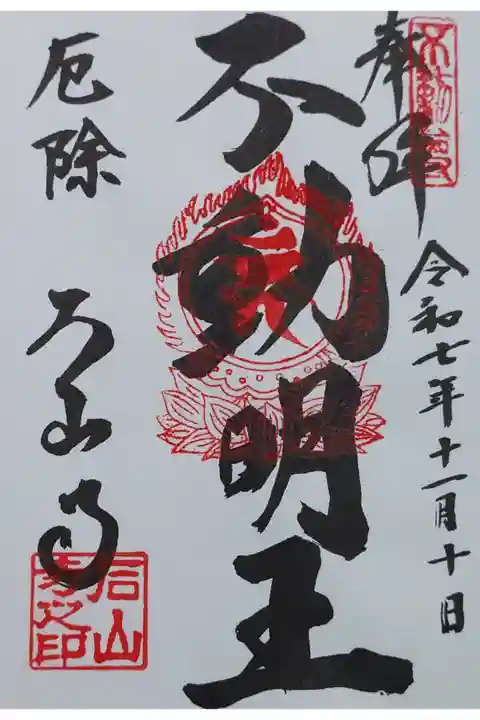 奉拝
令和七年十一月十日
不動明王
厄除 石山寺
石山寺之印